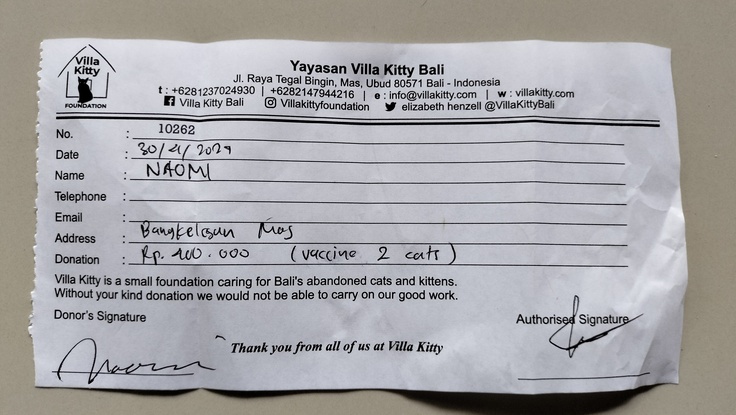 Villa
Kitty
FOUNDATION
Yayasan Villa Kitty Bali
Jl. Raya Tegal Bingin, Mas, Ubud 80571 Bali - Indonesia
t : +6281237024930 | +6282147944216 | e : info@villakitty.com | w : villakitty.com
Villa Kitty Bali Villakittyfoundation elizabeth henzell @VillaKittyBali
No. : 10262
Date : 30/4/2024
Name : NAOMI
Telephone :
Email :
Address : Mas
Donation : Rp. 400.000 (vaccine 2 cats)
Villa Kitty is a small foundation caring for Bali's abandoned cats and kittens.
Without your kind donation we would not be able to carry on our good work.
Donor's Signature Authorised Signature
Thank you from all of us at Villa Kitty